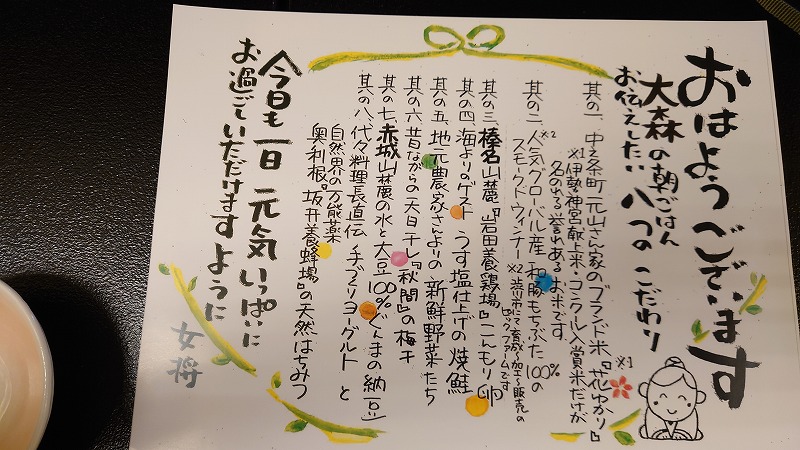 おはようございます
大森の朝ごはん
お伝えしたい 八つの こだわり
其の一、中之条町『元山さん家のブランド米『花ゆかり』※1
※1 伊勢神宮献上米・コンクール入賞米だけが
名のれる誉れあるお米です
其の二、人気グローバル産 和豚もちぶた 100%の
※2 スモークドウィンナー ※2 渋川市にて育成〜加工〜販売の
ファームです
其の三、榛名山麓『岩田養鶏場』こんもり卵
其の四、海よりのゲスト うす塩仕上げの 焼鮭
其の五、地元農家さんよりの 新鮮野菜たち
其の六、昔ながらの天日干し『秋間』の梅干
其の七、赤城山麓の水と大豆100%ぐんまの納豆
其の八、代々料理長直伝 手づくりヨーグルト と
自然界の万能薬
奥利根『坂井養蜂場』の天然はちみつ
今日も一日 元気いっぱいに
お過ごしいただけますように
女将